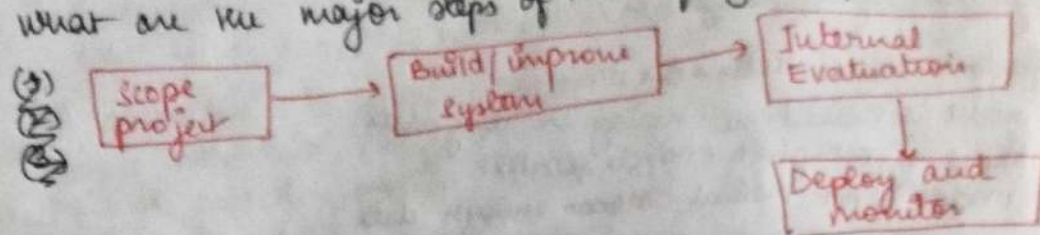 what are the major steps of
(1)
Scope
project
Build/improve
system
Internal
Evaluation
Deploy and
monitor